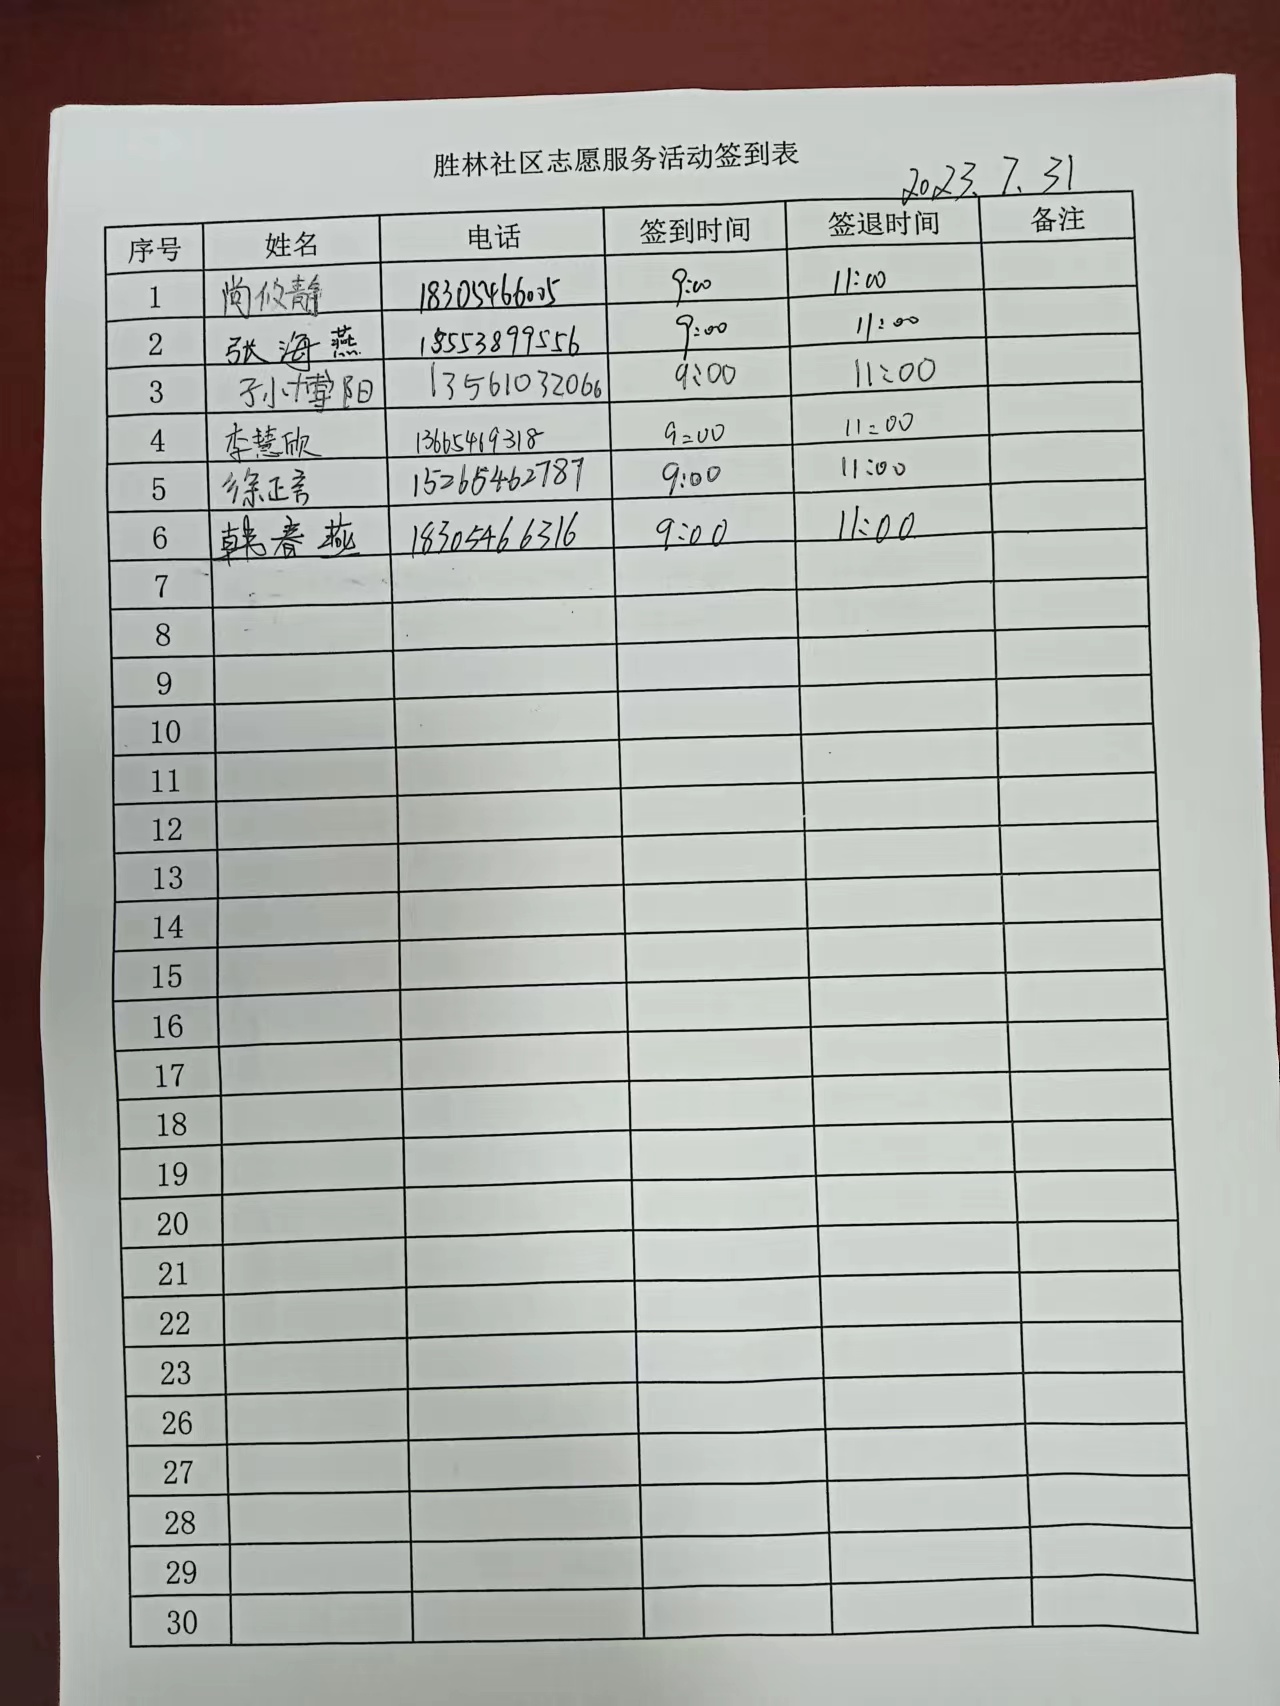 胜林社区志愿服务活动签到表
2023.7.31
序号 姓名 电话 签到时间 签退时间 备注
1 尚攸静 18305466005 9:00 11:00
2 张海燕 18553899556 9:00 11:00
3 孙博阳 13561032066 9:00 11:00
4 李慧欣 13665469318 9:00 11:00
5 徐正斋 15265462787 9:00 11:00
6 韩春燕 18305466316 9:00 11:00
7
8
9
10
11
12
13
14
15
16
17
18
19
20
21
22
23
26
27
28
29
30